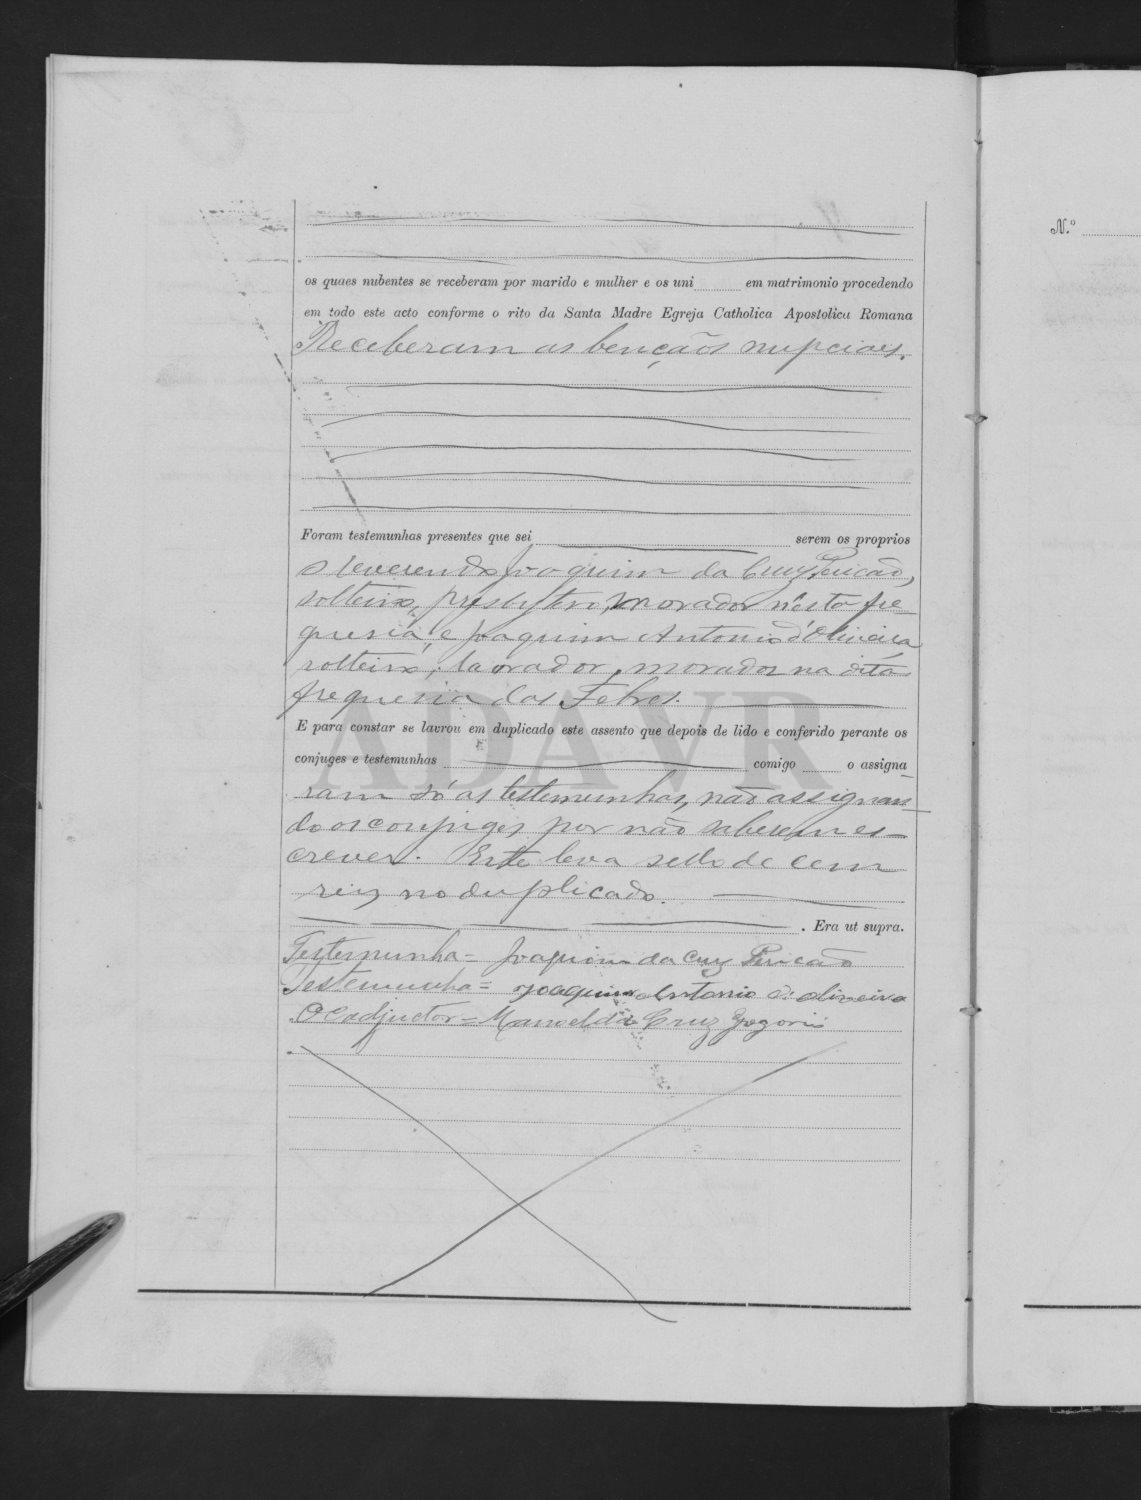 os quaes nubentes se receberam por marido e mulher e os uni em matrimonio procedendo
em todo este acto conforme o rito da Santa Madre Egreja Catholica Apostolica Romana
Receberam as bençãos nupciaes.
Foram testemunhas presentes que sei serem os proprios
o reverendo Joaquim da Cruz Pericão,
solteiro, presbytero, morador n'esta fre-
guesia, e Joaquim Antonio d'Oliveira
solteiro, lavrador, morador na dita
freguesia das Febres.
E para constar se lavrou em duplicado este assento que depois de lido e conferido perante os
conjuges e testemunhas comigo o assigna-
ram só as testemunhas, não assignan-
do os conjuges por não saberem es-
crever. Este leva sello de cem
reis no duplicado.
. Era ut supra.
Testemunha = Joaquim da Cruz Pericão
Testemunha = Joaquim Antonio d'Oliveira
O Coadjuctor = Manoel da Cruz Gregorio
N.º
ADAVR